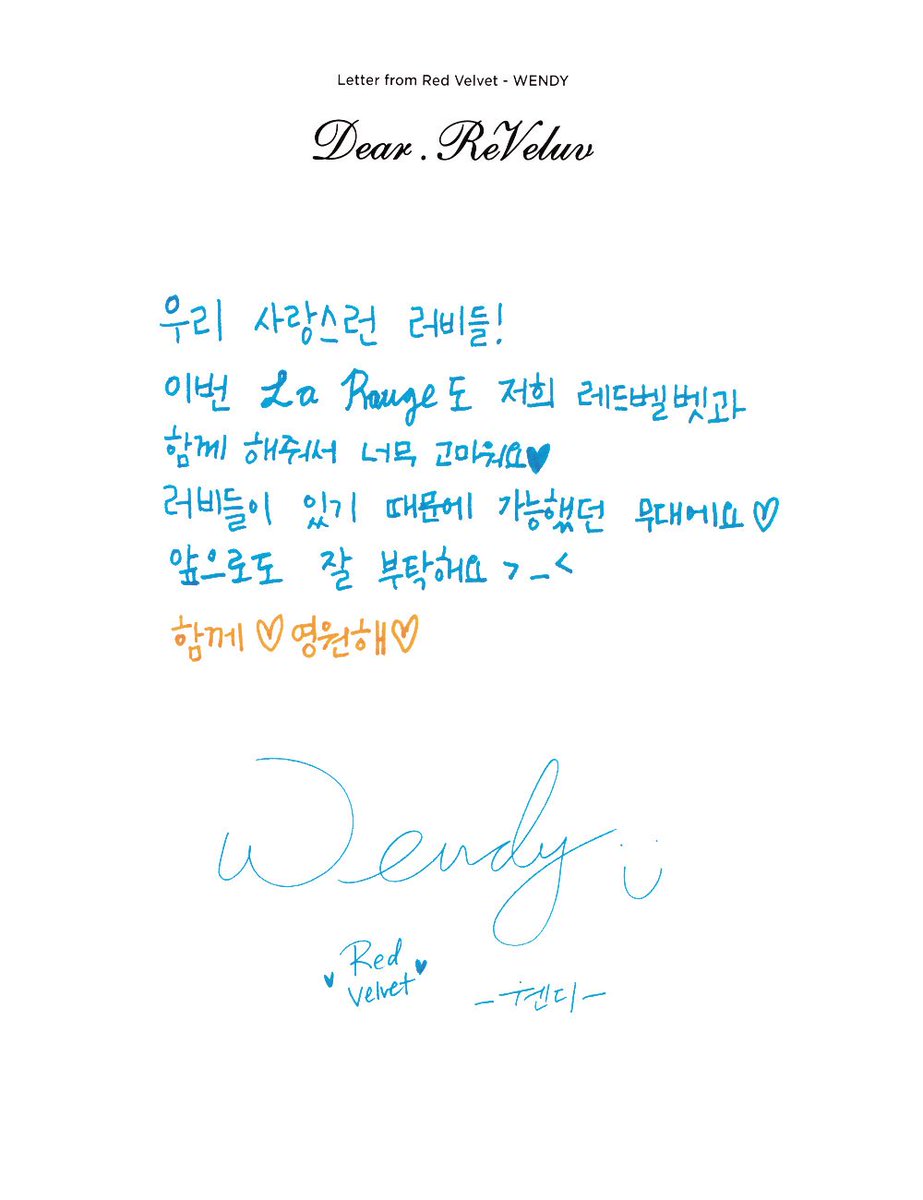 Letter from Red Velvet - WENDY
Dear. ReVeluv
우리 사랑스런 러비들!
이번 La Rouge도 저희 레드벨벳과
함께 해줘서 너무 고마워요♥
러비들이 있기 때문에 가능했던 무대에요♡
앞으로도 잘 부탁해요 >_<
함께♡영원해♡
Wendy
Red
Velvet
-웬디-